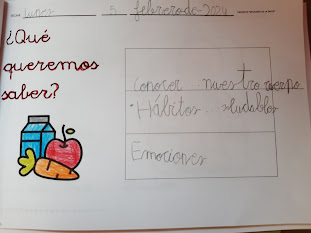 Lunes 5 febrero de 2024
¿Qué
queremos
saber?
Conocer nuestro cuerpo
Hábitos saludables
Emociones